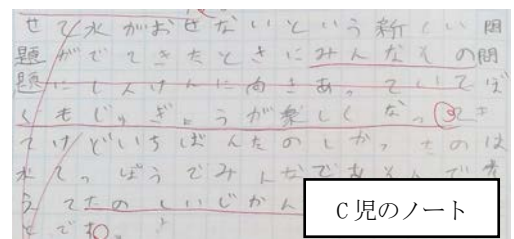 せて水がおせないという新しい問
題がでてきたときにみんなその問
題にしんけんに向きあっていてぼ
くもじゅぎょうが楽しくなってき
てけどいちばんたのしかったのは
水てっぽうでみんなであそんで
たのしいじかん
です。
C児のノート